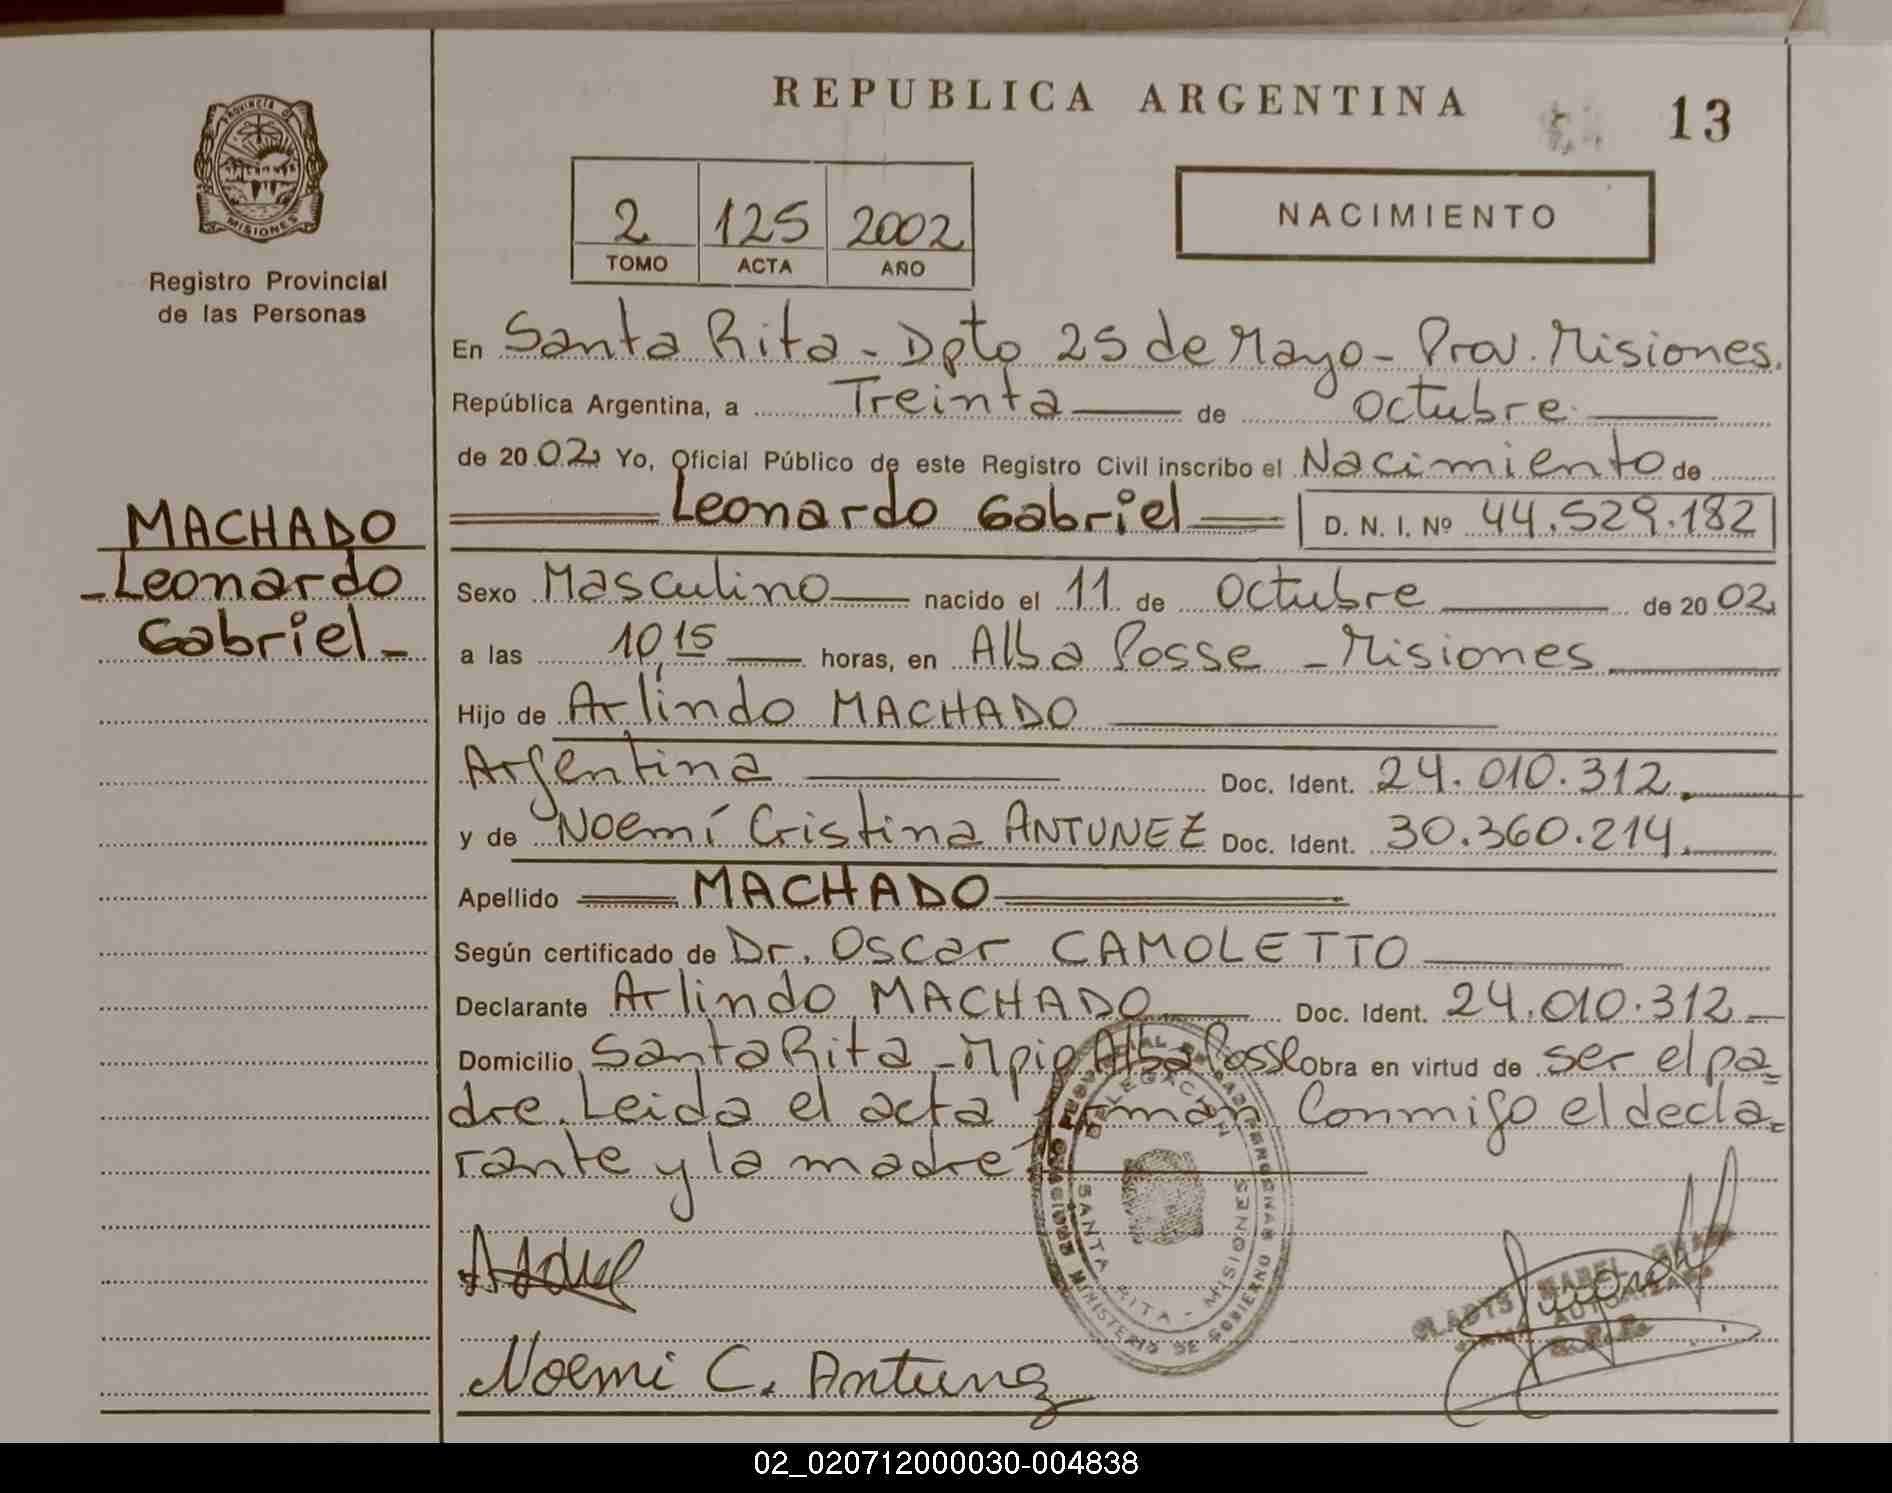 REPUBLICA ARGENTINA
13
PROVINCIA DE
MISIONES
Registro Provincial
de las Personas
2 125 2002
TOMO ACTA AÑO
NACIMIENTO
En Santa Rita - Dpto 25 de Mayo - Prov. Misiones.
República Argentina, a Treinta de octubre
de 2002 Yo, Oficial Público de este Registro Civil inscribo el Nacimiento de
Leonardo Gabriel D. N. I. Nº 44.529.182
MACHADO
Leonardo
Gabriel
Sexo Masculino nacido el 11 de Octubre de 2002
a las 10,15 horas, en Alba Posse - Misiones
Hijo de Arlindo MACHADO
Argentina Doc. Ident. 24.010.312
y de Noemí Cristina ANTUNEZ Doc. Ident. 30.360.214
Apellido MACHADO
Según certificado de Dr. Oscar CAMOLETTO
Declarante Arlindo MACHADO Doc. Ident. 24.010.312
Domicilio Santa Rita - Mpio Alba Posse Obra en virtud de ser el pa=
dre. Leida el acta firman Conmigo el decla=
rante y la madre
DELEGACION
SANTA RITA - MISIONES
MINISTERIO DE GOBIERNO
Noemi C. Antunez
GLADYS MABEL
FIRMA AUTORIZADA
02_020712000030-004838